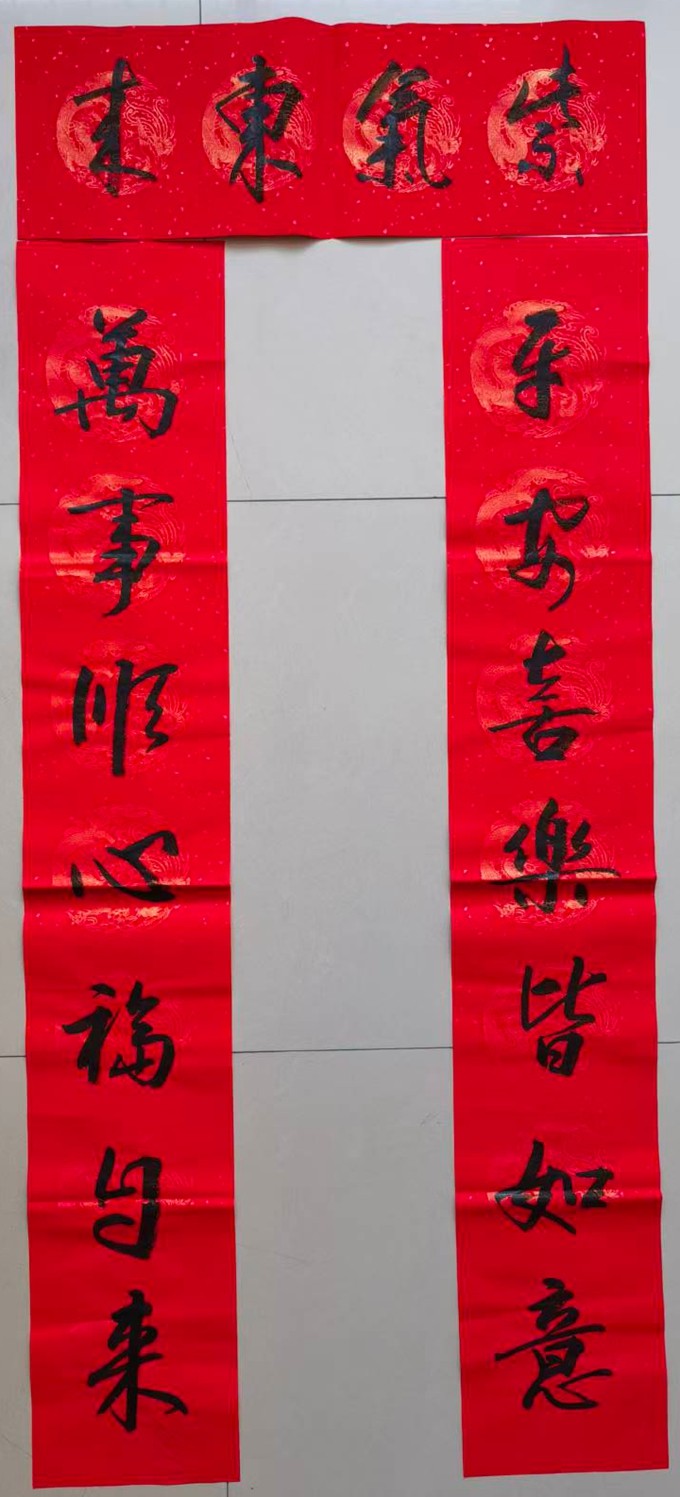 紫氣東來
平安喜樂皆如意
萬事順心福自來